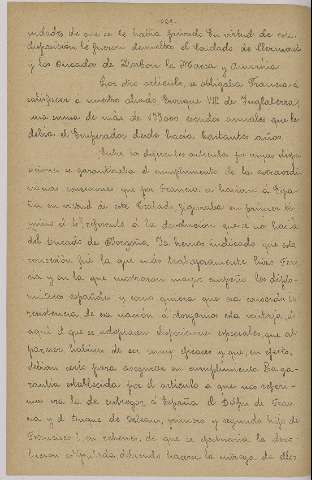 dades de que se le había privado. En virtud de esta
disposición le fueron devueltos el Condado de Clermont
y los Ducados de Borbon la Marca y Auvernia
Por otro artículo, se obligaba Francia á
satisfacer a nuestro aliado Enrique VIII de Inglaterra,
una suma de más de 133000 escudos anuales que le
debía el Emperador desde hacía bastantes años.
Entre los diferentes artículos por cuyas dispo
siciones se garantizaba el cumplimiento de las extraordi
narias concesiones que por Francia se hacían á Espa
ña en virtud de este Tratado figuraba en primer tér
mino el referente á la devolución que se nos hacía
del Ducado de Borgoña. Ya hemos indicado que esta
concesión fué la que más trabajosamente hizo Fran
cia y en la que mostraron mayor empeño los diplo
máticos españoles y como quiera que era conocida la
resistencia de esa nación á otorgarnos esta ventaja, de
aquí el que se adoptasen disposiciones especiales, que al
parecer habían de ser muy eficaces y que, en efecto,
debían serlo para asegurar su cumplimiento. La ga
rantía establecida por el artículo a que nos referi
mos era la de entregar á España el Delfín de Fran
cia y el Duque de Orleans, primero y segundo hijo de
Francisco I, en rehenes, de que se efectuaría la devo
lución estipulada debiendo hacerse la entrega de ellos